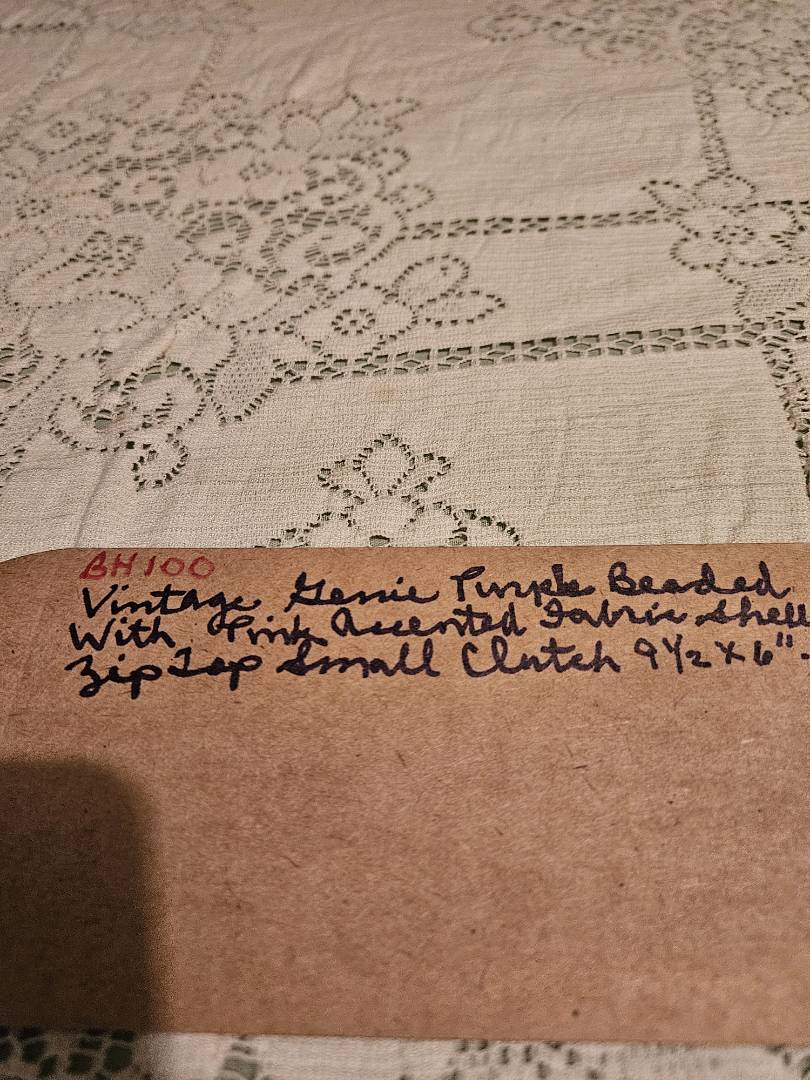 BH100
Vintage Genie Purple Beaded
With Pink Accented Fabric Shell
Zip Top Small Clutch 9 1/2 X 6".